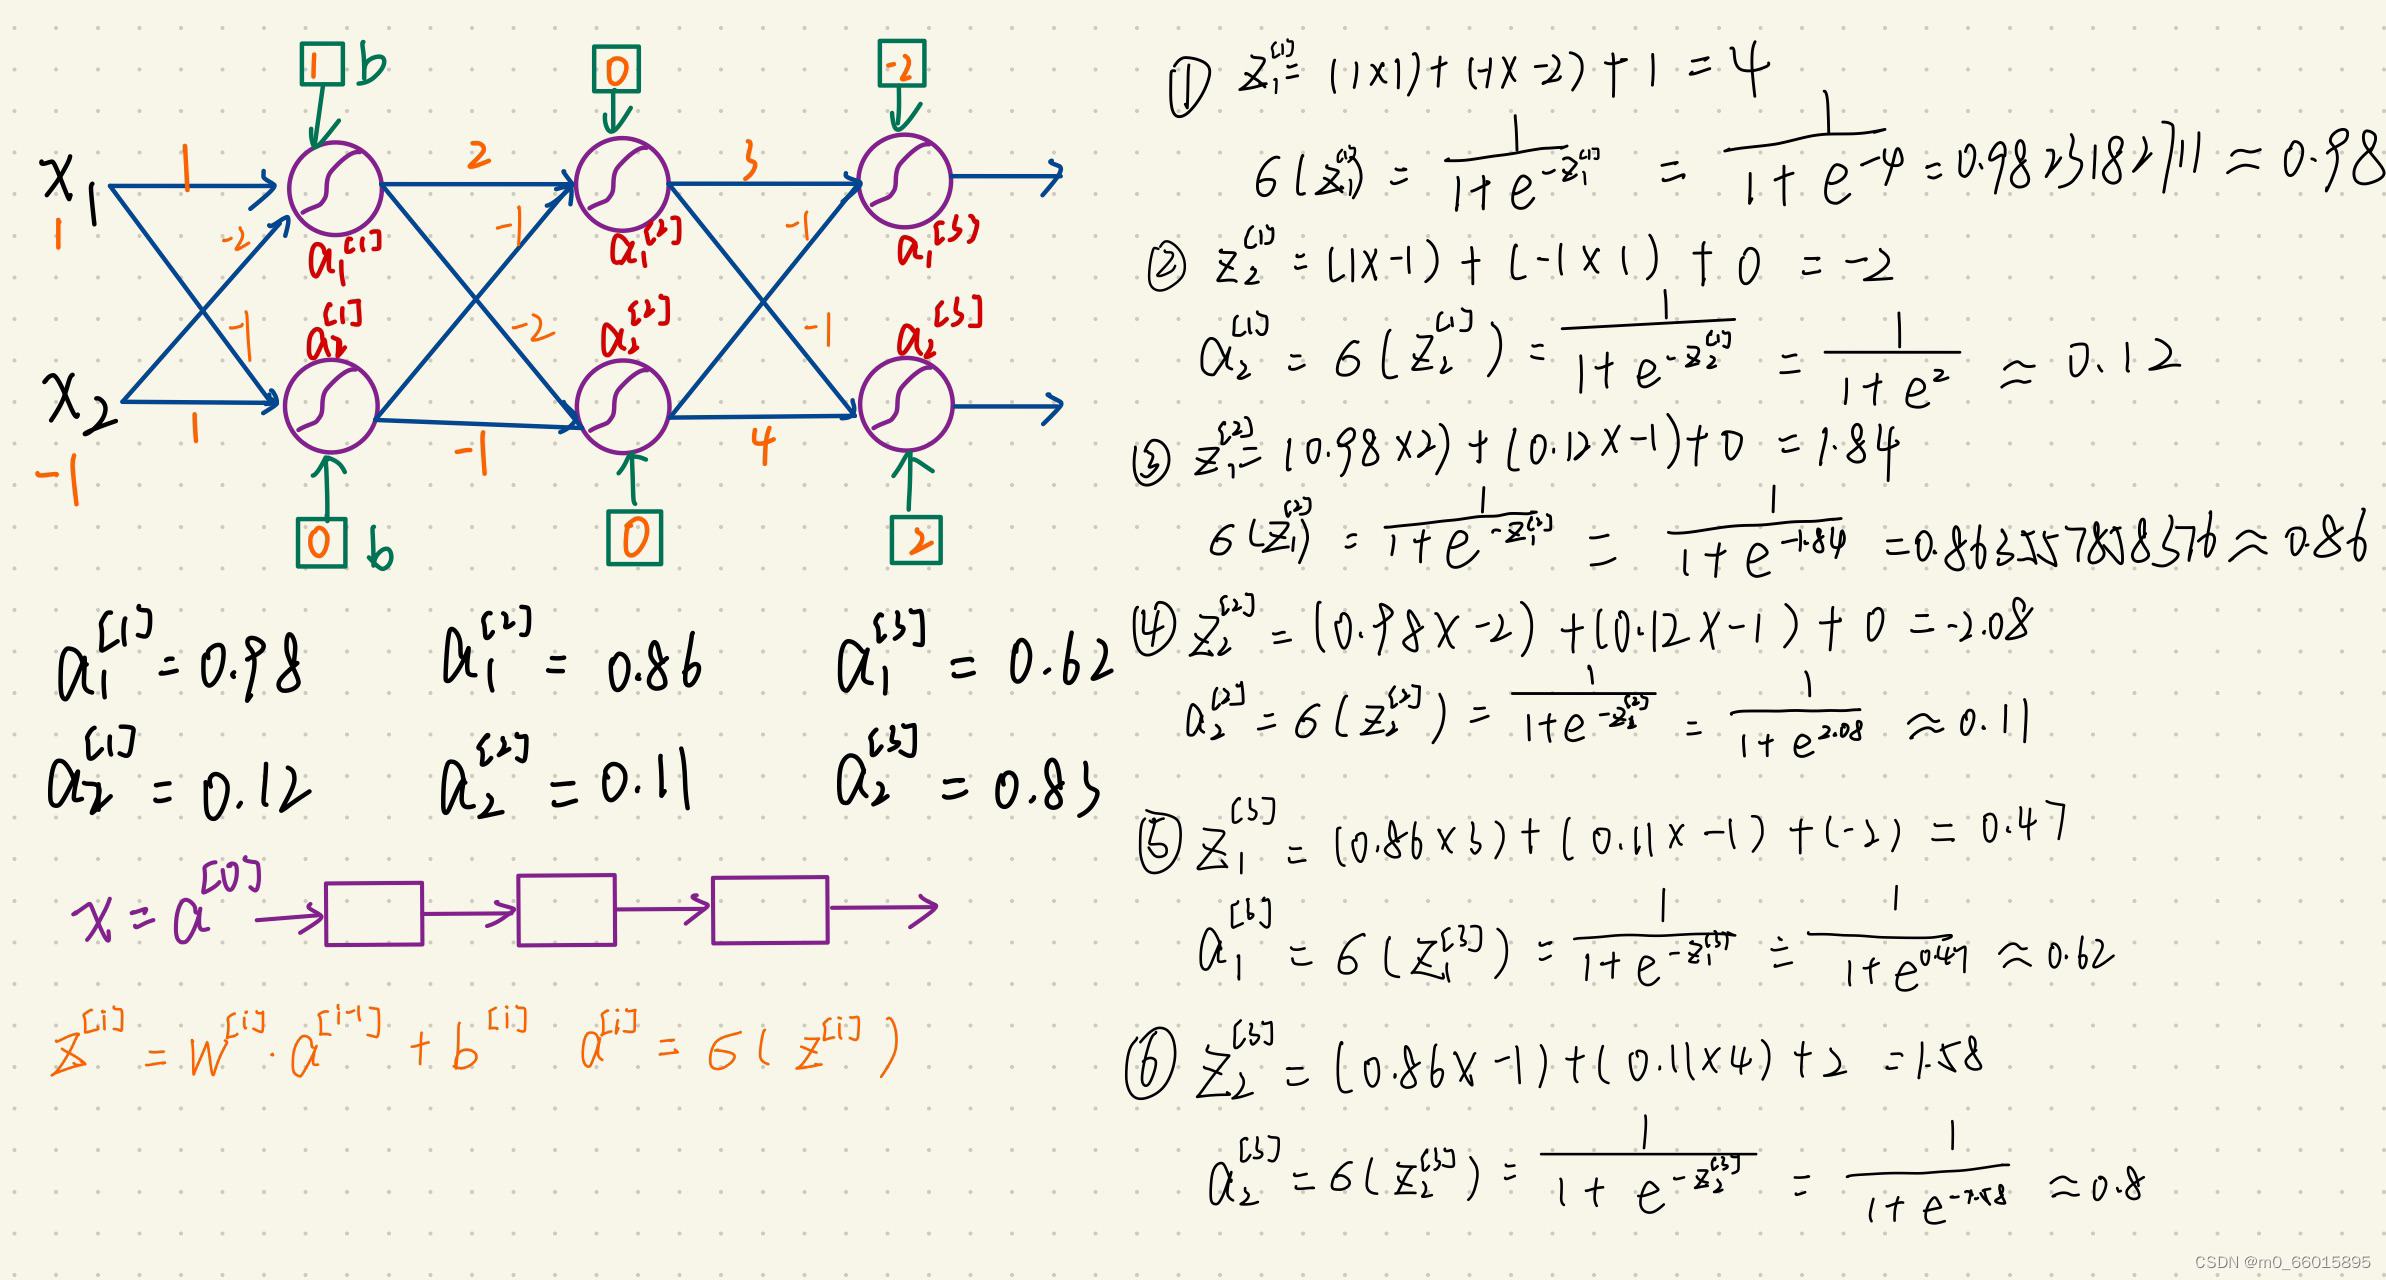 1 b 0 -2
x₁ 1 2 3
1 -2 -1 -1
a₁^[1] a₁^[2] a₁^[3]
a₂^[1] a₂^[2] a₂^[3]
-1 -2 -1
x₂ 1 -1 4
-1
0 b 0 2
a₁^[1] = 0.98 a₁^[2] = 0.86 a₁^[3] = 0.62
a₂^[1] = 0.12 a₂^[2] = 0.11 a₂^[3] = 0.83
x = a^[0]
z^[i] = W^[i] · a^[i-1] + b^[i] a^[i] = 6(z^[i])
① z₁^[1] = (1×1) + (-1×-2) + 1 = 4
6(z₁^[1]) = 1/(1+e^(-z₁^[1])) = 1/(1+e^(-4)) = 0.9823182711 ≈ 0.98
② z₂^[1] = (1×-1) + (-1×1) + 0 = -2
a₂^[1] = 6(z₂^[1]) = 1/(1+e^(-z₂^[1])) = 1/(1+e^2) ≈ 0.12
③ z₁^[2] = (0.98×2) + (0.12×-1) + 0 = 1.84
6(z₁^[2]) = 1/(1+e^(-z₁^[2])) = 1/(1+e^(-1.84)) = 0.863557858376 ≈ 0.86
④ z₂^[2] = (0.98×-2) + (0.12×-1) + 0 = -2.08
a₂^[2] = 6(z₂^[2]) = 1/(1+e^(-z₂^[2])) = 1/(1+e^2.08) ≈ 0.11
⑤ z₁^[3] = (0.86×3) + (0.11×-1) + (-2) = 0.47
a₁^[3] = 6(z₁^[3]) = 1/(1+e^(-z₁^[3])) = 1/(1+e^0.47) ≈ 0.62
⑥ z₂^[3] = (0.86×-1) + (0.11×4) + 2 = 1.58
a₂^[3] = 6(z₂^[3]) = 1/(1+e^(-z₂^[3])) = 1/(1+e^(-1.58)) ≈ 0.8
CSDN @m0_66015895